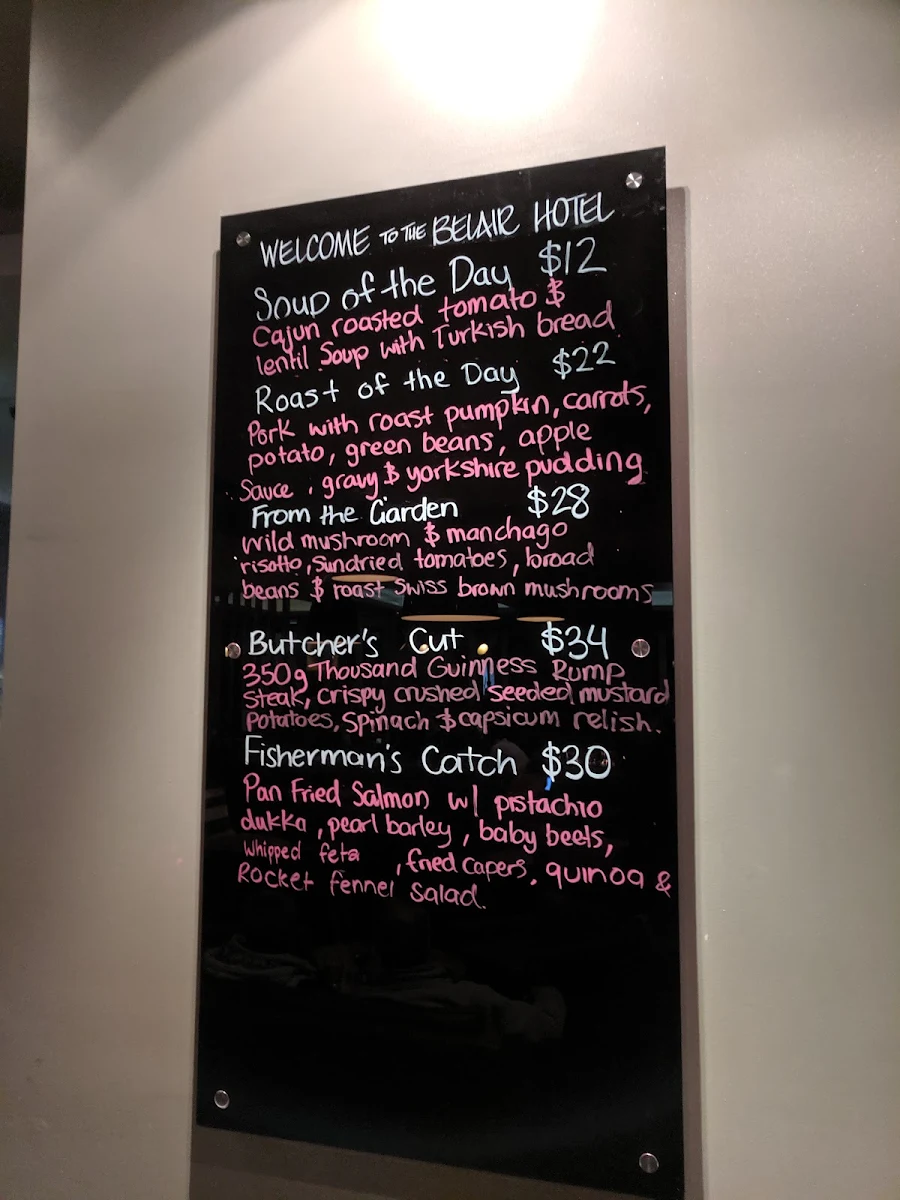 WELCOME TO THE BELAIR HOTEL
Soup of the Day $12
Cajun roasted tomato $
lentil Soup with Turkish bread
Roast of the Day $22
Pork with roast pumpkin, carrots,
potato, green beans, apple
Sauce, gravy $ yorkshire pudding
From the Garden $28
Wild mushroom $ manchago
risotto, Sundried tomatoes, broad
beans $ roast Swiss brown mushrooms
Butcher's Cut $34
350g Thousand Guinness Rump
Steak, crispy crushed seeded mustard
potatoes, Spinach $ capsicum relish.
Fisherman's Catch $30
Pan Fried Salmon w/ pistachio
dukka, pearl barley, baby beets,
whipped feta, fried capers, quinoa &
Rocket fennel Salad.